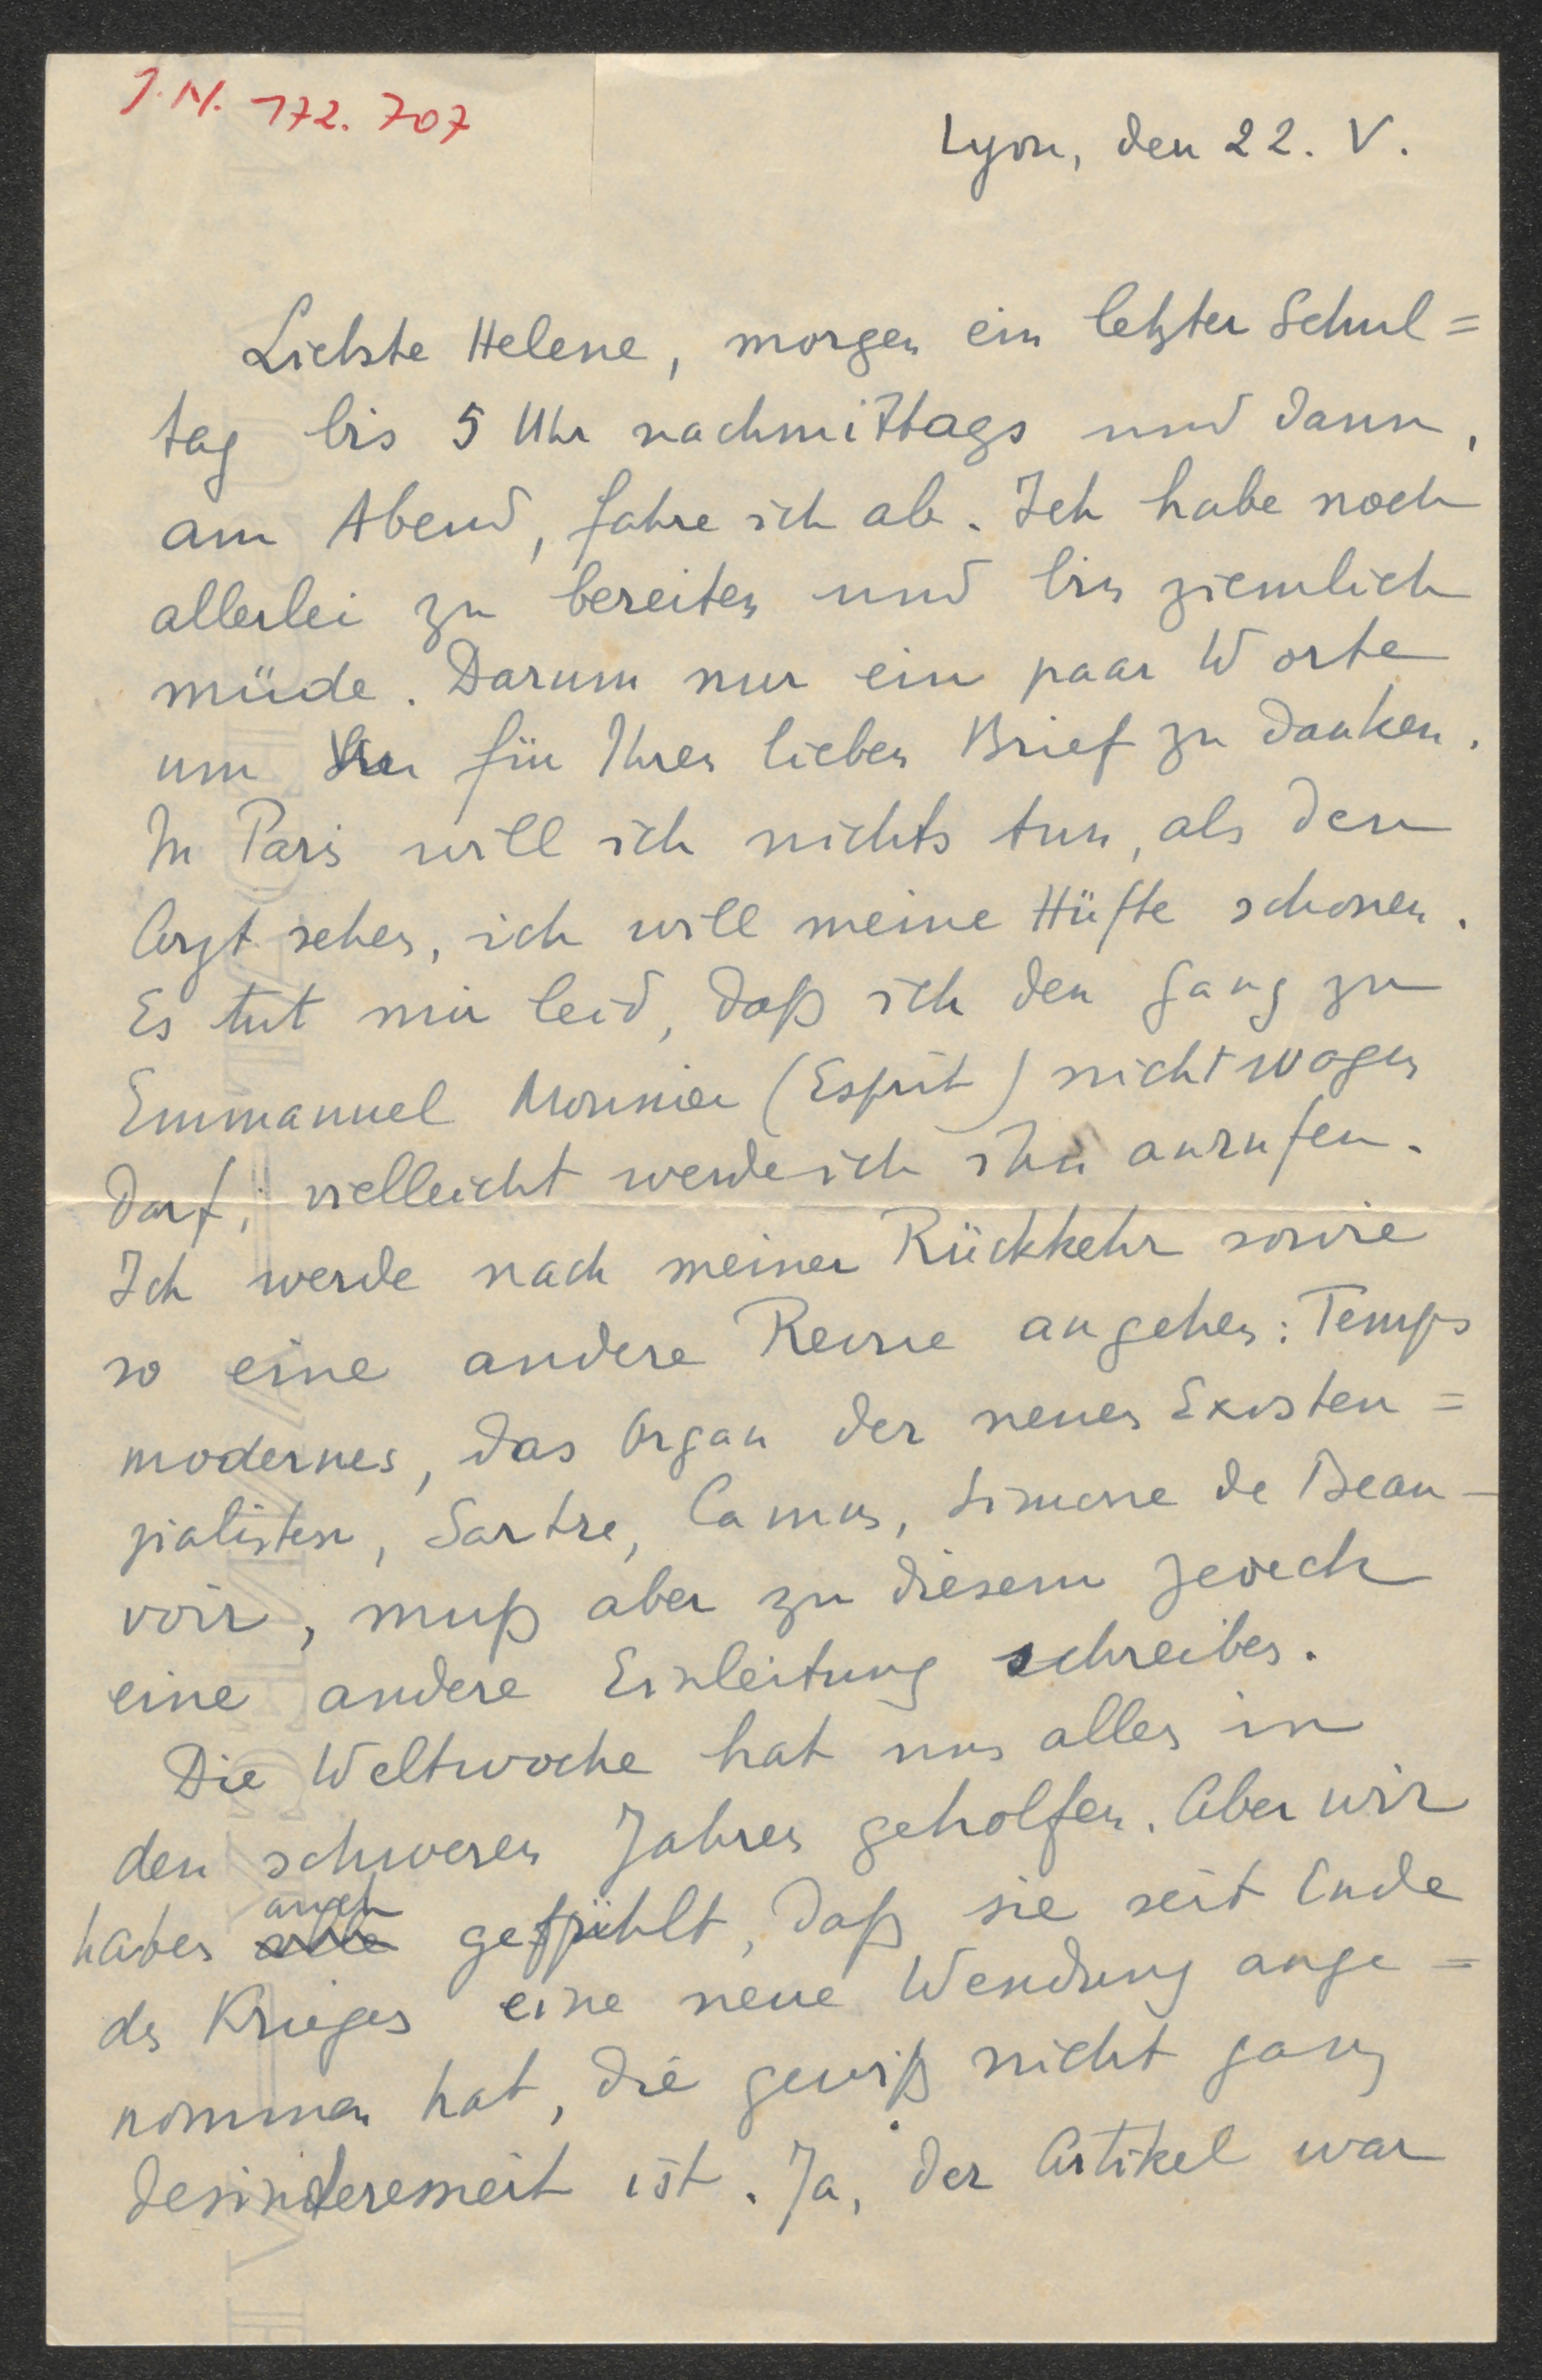 J.N. 172.707
Lyon, den 22. V.
Liebste Helene, morgen ein letzter Schul=
tag bis 5 Uhr nachmittags und dann,
am Abend, fahre ich ab. Ich habe noch
allerlei zu bereiten und bin ziemlich
müde. Darum nur ein paar Worte
um für Ihren lieben Brief zu danken.
In Paris will ich nichts tun, als den
Arzt sehen, ich will meine Hüfte schonen.
Es tut mir leid, daß ich den Gang zu
Emmanuel Mounier (Esprit) nicht wagen
darf, vielleicht werde ich ihn anrufen.
Ich werde nach meiner Rückkehr sowie
so eine andere Revue angehen: Temps
modernes, das Organ der neuen Existen=
zialisten, Sartre, Camus, Simone de Beau-
voir, muß aber zu diesem Zweck
eine andere Einleitung schreiben.
Die Weltwoche hat uns allen in
den schweren Jahren geholfen. Aber wir
haben auch gefühlt, daß sie seit Ende
des Krieges eine neue Wendung ange=
nommen hat, die gewiß nicht ganz
desinteressiert ist. Ja, der Artikel war